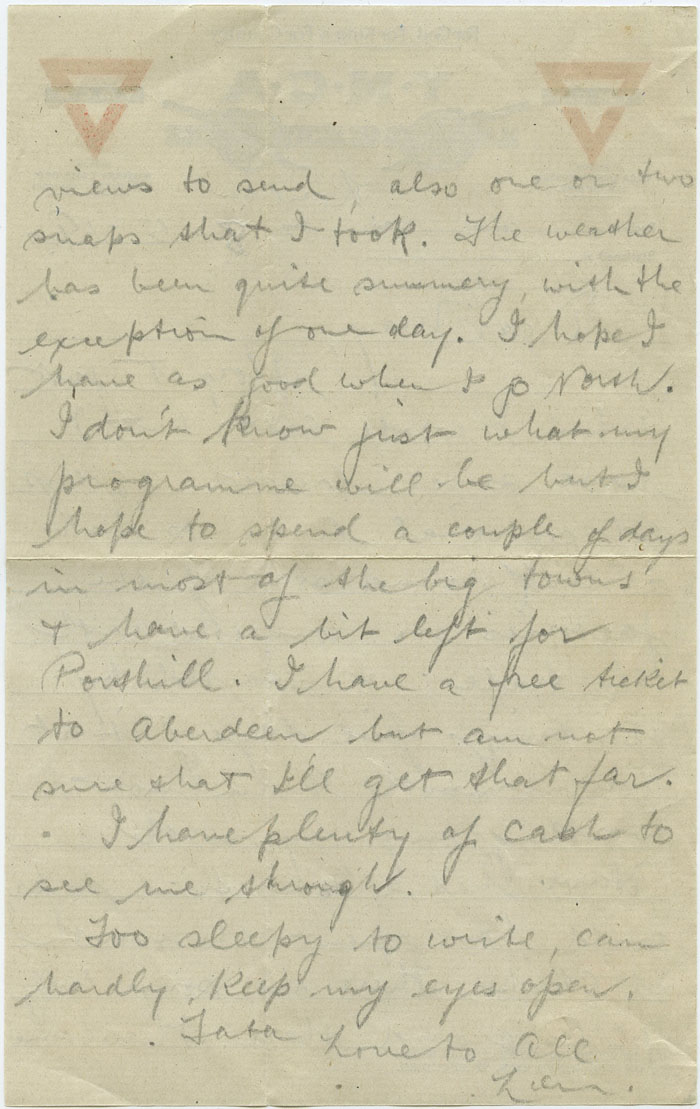 views to send, also one or two
snaps that I took. The weather
has been quite summery, with the
exception of one day. I hope I
have as good when I go North.
I don't know just what my
programme will be but I
hope to spend a couple of days
in most of the big towns
& have a bit left for
Ponthill. I have a free ticket
to Aberdeen but am not
sure that I'll get that far.
I have plenty of cash to
see me through.
Too sleepy to write, can
hardly keep my eyes open.
Tata
Love to All
Len.